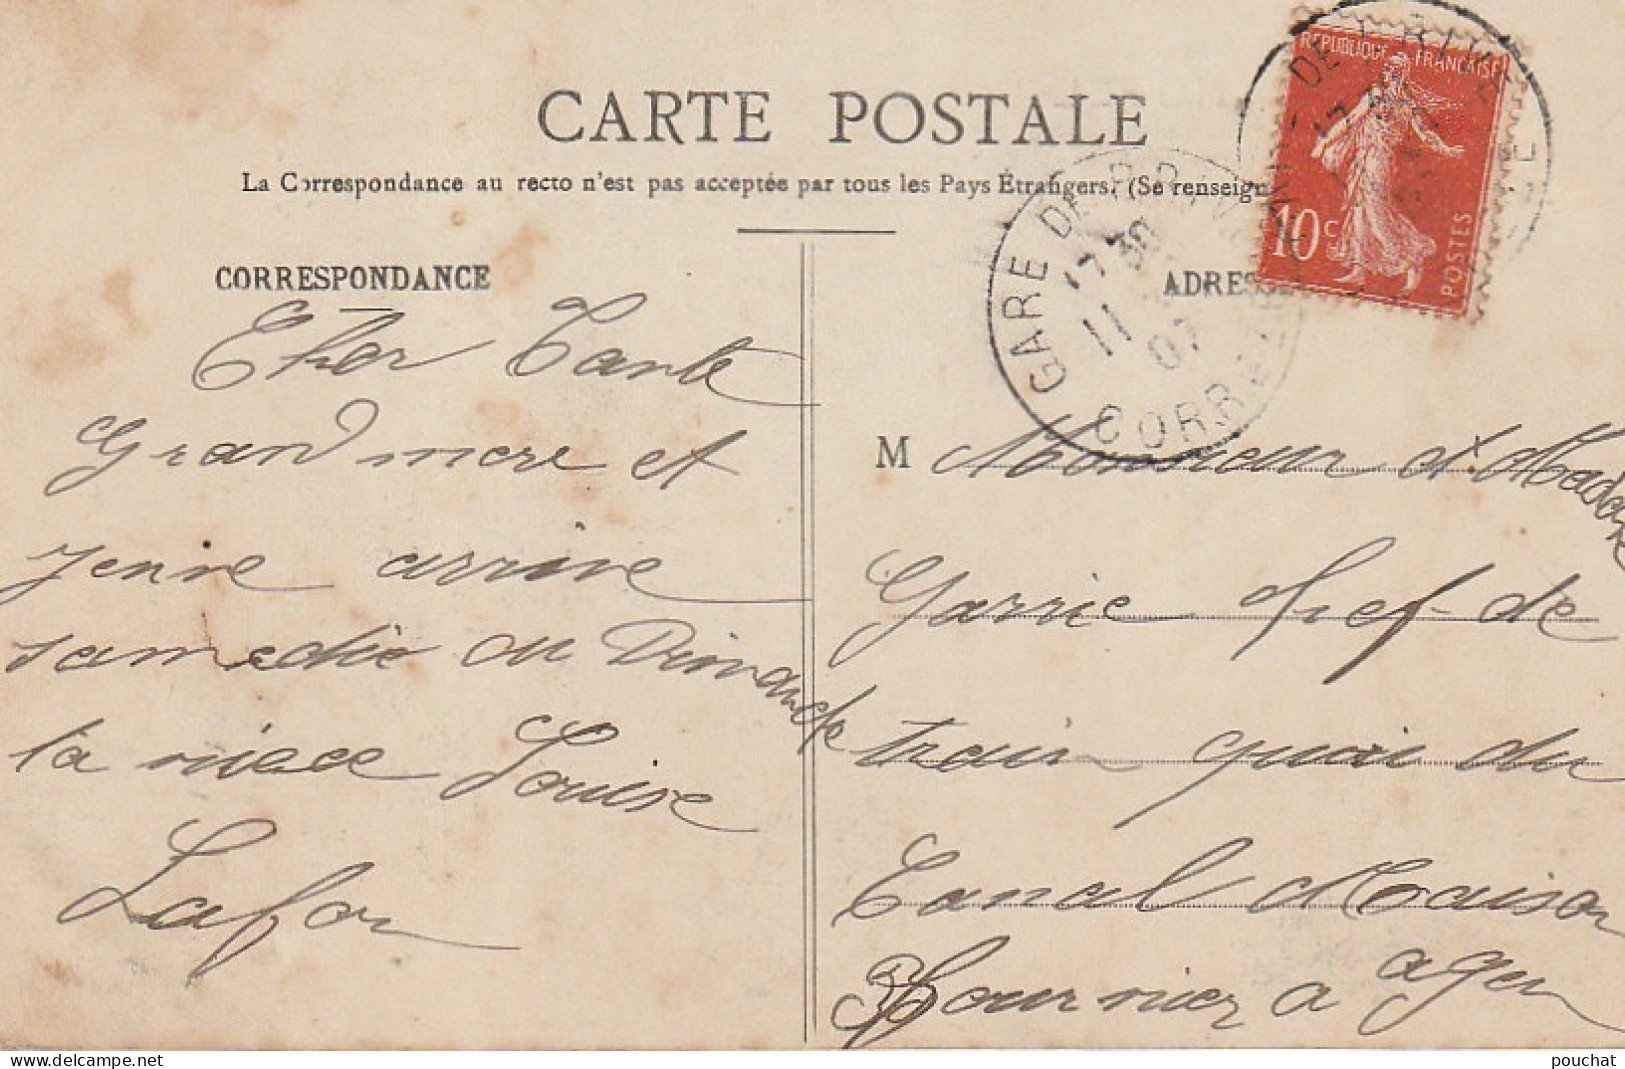 CARTE POSTALE
La Correspondance au recto n'est pas acceptée par tous les Pays Étrangers. (Se renseign
CORRESPONDANCE
ADRESSE
REPUBLIQUE FRANÇAISE
10c
POSTES
GARE DE BRIVE
17 30
11
07
CORREZE
Cher Tante
Grand mere et
Jenne arrive
samedie ou Dimanche
ta niece Louise
Lafon
M Monsieur et Madame
Garrie chef de
train quai du
Canal Maison
Fournier a agen
pouchat